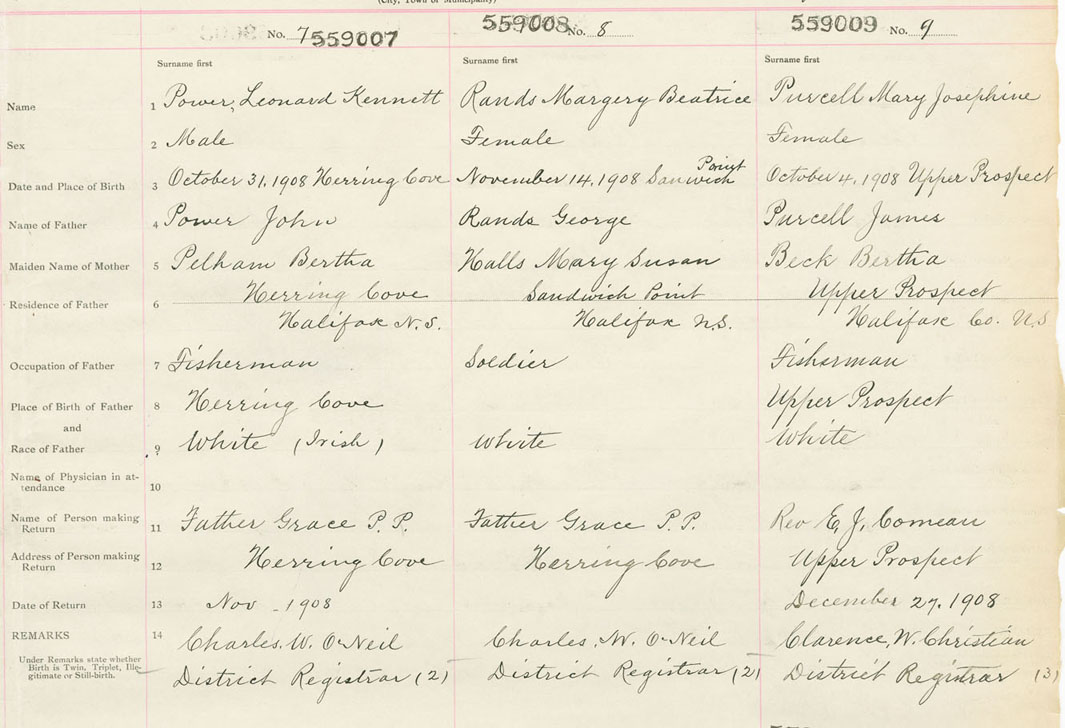 (City, Town or Municipality)
No. 7 559007 559008 No. 8 559009 No. 9
Surname first Surname first Surname first
Name 1 Power, Leonard Kennett Rands Margery Beatrice Purcell Mary Josephine
Sex 2 Male Female Female
Point
Date and Place of Birth 3 October 31, 1908 Herring Cove November 14, 1908 Sandwich October 4, 1908 Upper Prospect
Name of Father 4 Power John Rands George Purcell James
Maiden Name of Mother 5 Pelham Bertha Halls Mary Susan Beck Bertha
Residence of Father 6 Herring Cove Sandwich Point Upper Prospect
Halifax N.S. Halifax N.S. Halifax Co. N.S
Occupation of Father 7 Fisherman Soldier Fisherman
Place of Birth of Father 8 Herring Cove Upper Prospect
and
Race of Father 9 White (Irish) White White
Name of Physician in at-
tendance 10
Name of Person making
Return 11 Father Grace P.P. Father Grace P.P. Rev E. J. Comeau
Address of Person making
Return 12 Herring Cove Herring Cove Upper Prospect
Date of Return 13 Nov - 1908 December 27, 1908
REMARKS 14 Charles. W. O-Neil Charles. W. O-Neil Clarence, W. Christian
Under Remarks state whether
Birth is Twin, Triplet, Ille-
gitimate or Still-birth.
District Registrar (2) District Registrar (2) District Registrar (3)